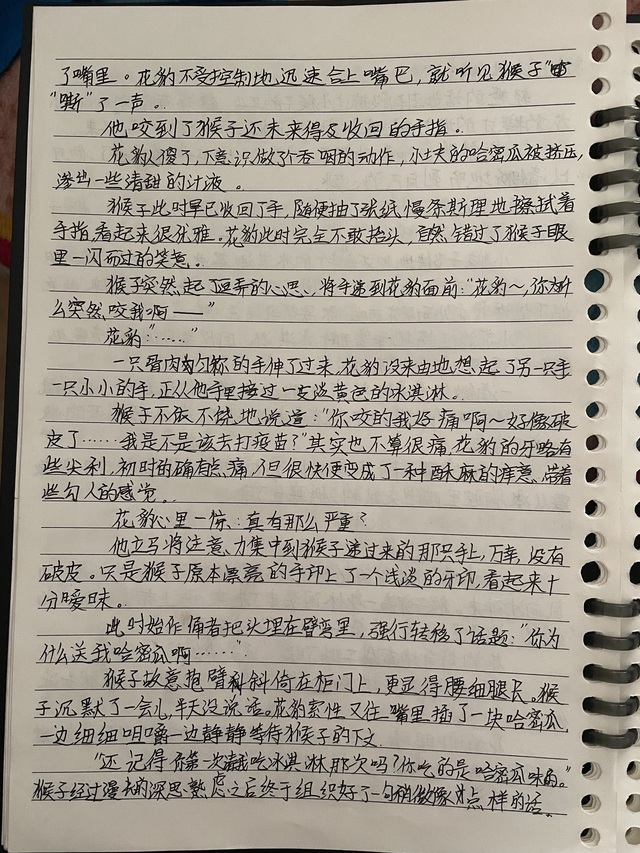 了嘴里。花豹不受控制地迅速合上嘴巴，就听见猴子“
“嘶”了一声。
他咬到了猴子还未来得及收回的手指。
花豹人傻了，下意识做了个吞咽的动作，的哈密瓜被挤压，
渗出一些清甜的汁液。
猴子此时早已收回了手，随便抽了张纸慢条斯理地擦拭着
手指，看起来很优雅。花豹此时完全不敢抬头，自然错过了猴子眼
里一闪而过的笑意。
猴子突然起了逗弄的心思，将手递到花豹面前：“花豹～，你为什
么突然咬我啊——”
花豹：“……”
一只骨肉匀称的手伸了过来，花豹没来由地想起了另一只手
一只小小的手，正从他手里接过一支淡黄色的冰淇淋。
猴子不依不饶地说道：“你咬的我好痛啊～好像破
皮了……我是不是该去打疫苗？”其实也不算很痛，花豹的牙略有
些尖利，初时的确有点痛，但很快便变成了一种酥麻的痒意，带着
些勾人的感觉。
花豹心里一惊：真有那么严重？
他立马将注意力集中到猴子递过来的那只手上，万幸，没有
破皮。只是猴子原本漂亮的手印上了一个浅淡的牙印，看起来十
分暧昧。
此时始作俑者把头埋在臂弯里，强行转移了话题：“你为
什么送我哈密瓜啊……”
猴子故意抱臂斜倚在柜门上，更显得腰细腿长。猴
子沉默了一会儿，半天没说话。花豹索性又往嘴里插了一块哈密瓜，
一边细细咀嚼一边静静等待猴子的下文。
“还记得你第一次请我吃冰淇淋那次吗？你吃的是哈密瓜味的。”
猴子经过漫长的深思熟虑之后终于组织好了一句稍微像点样的话。